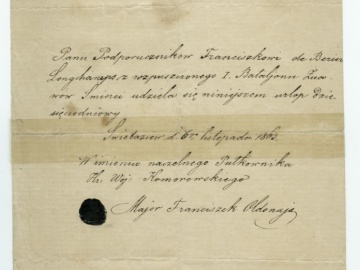 Panu Podporucznikow Franciszkowi de Berier
Longchamps, z rozpuszczonego I. Bataljonu Żua-
wów Śmierci udziela się niniejszem urlop dzie-
sięciodniowy
Świetoziew d. 6go listopada 1863.
W imieniu naczelnego Pułkownika
Hr. Woj. Komorowskiego
Major Franciszek